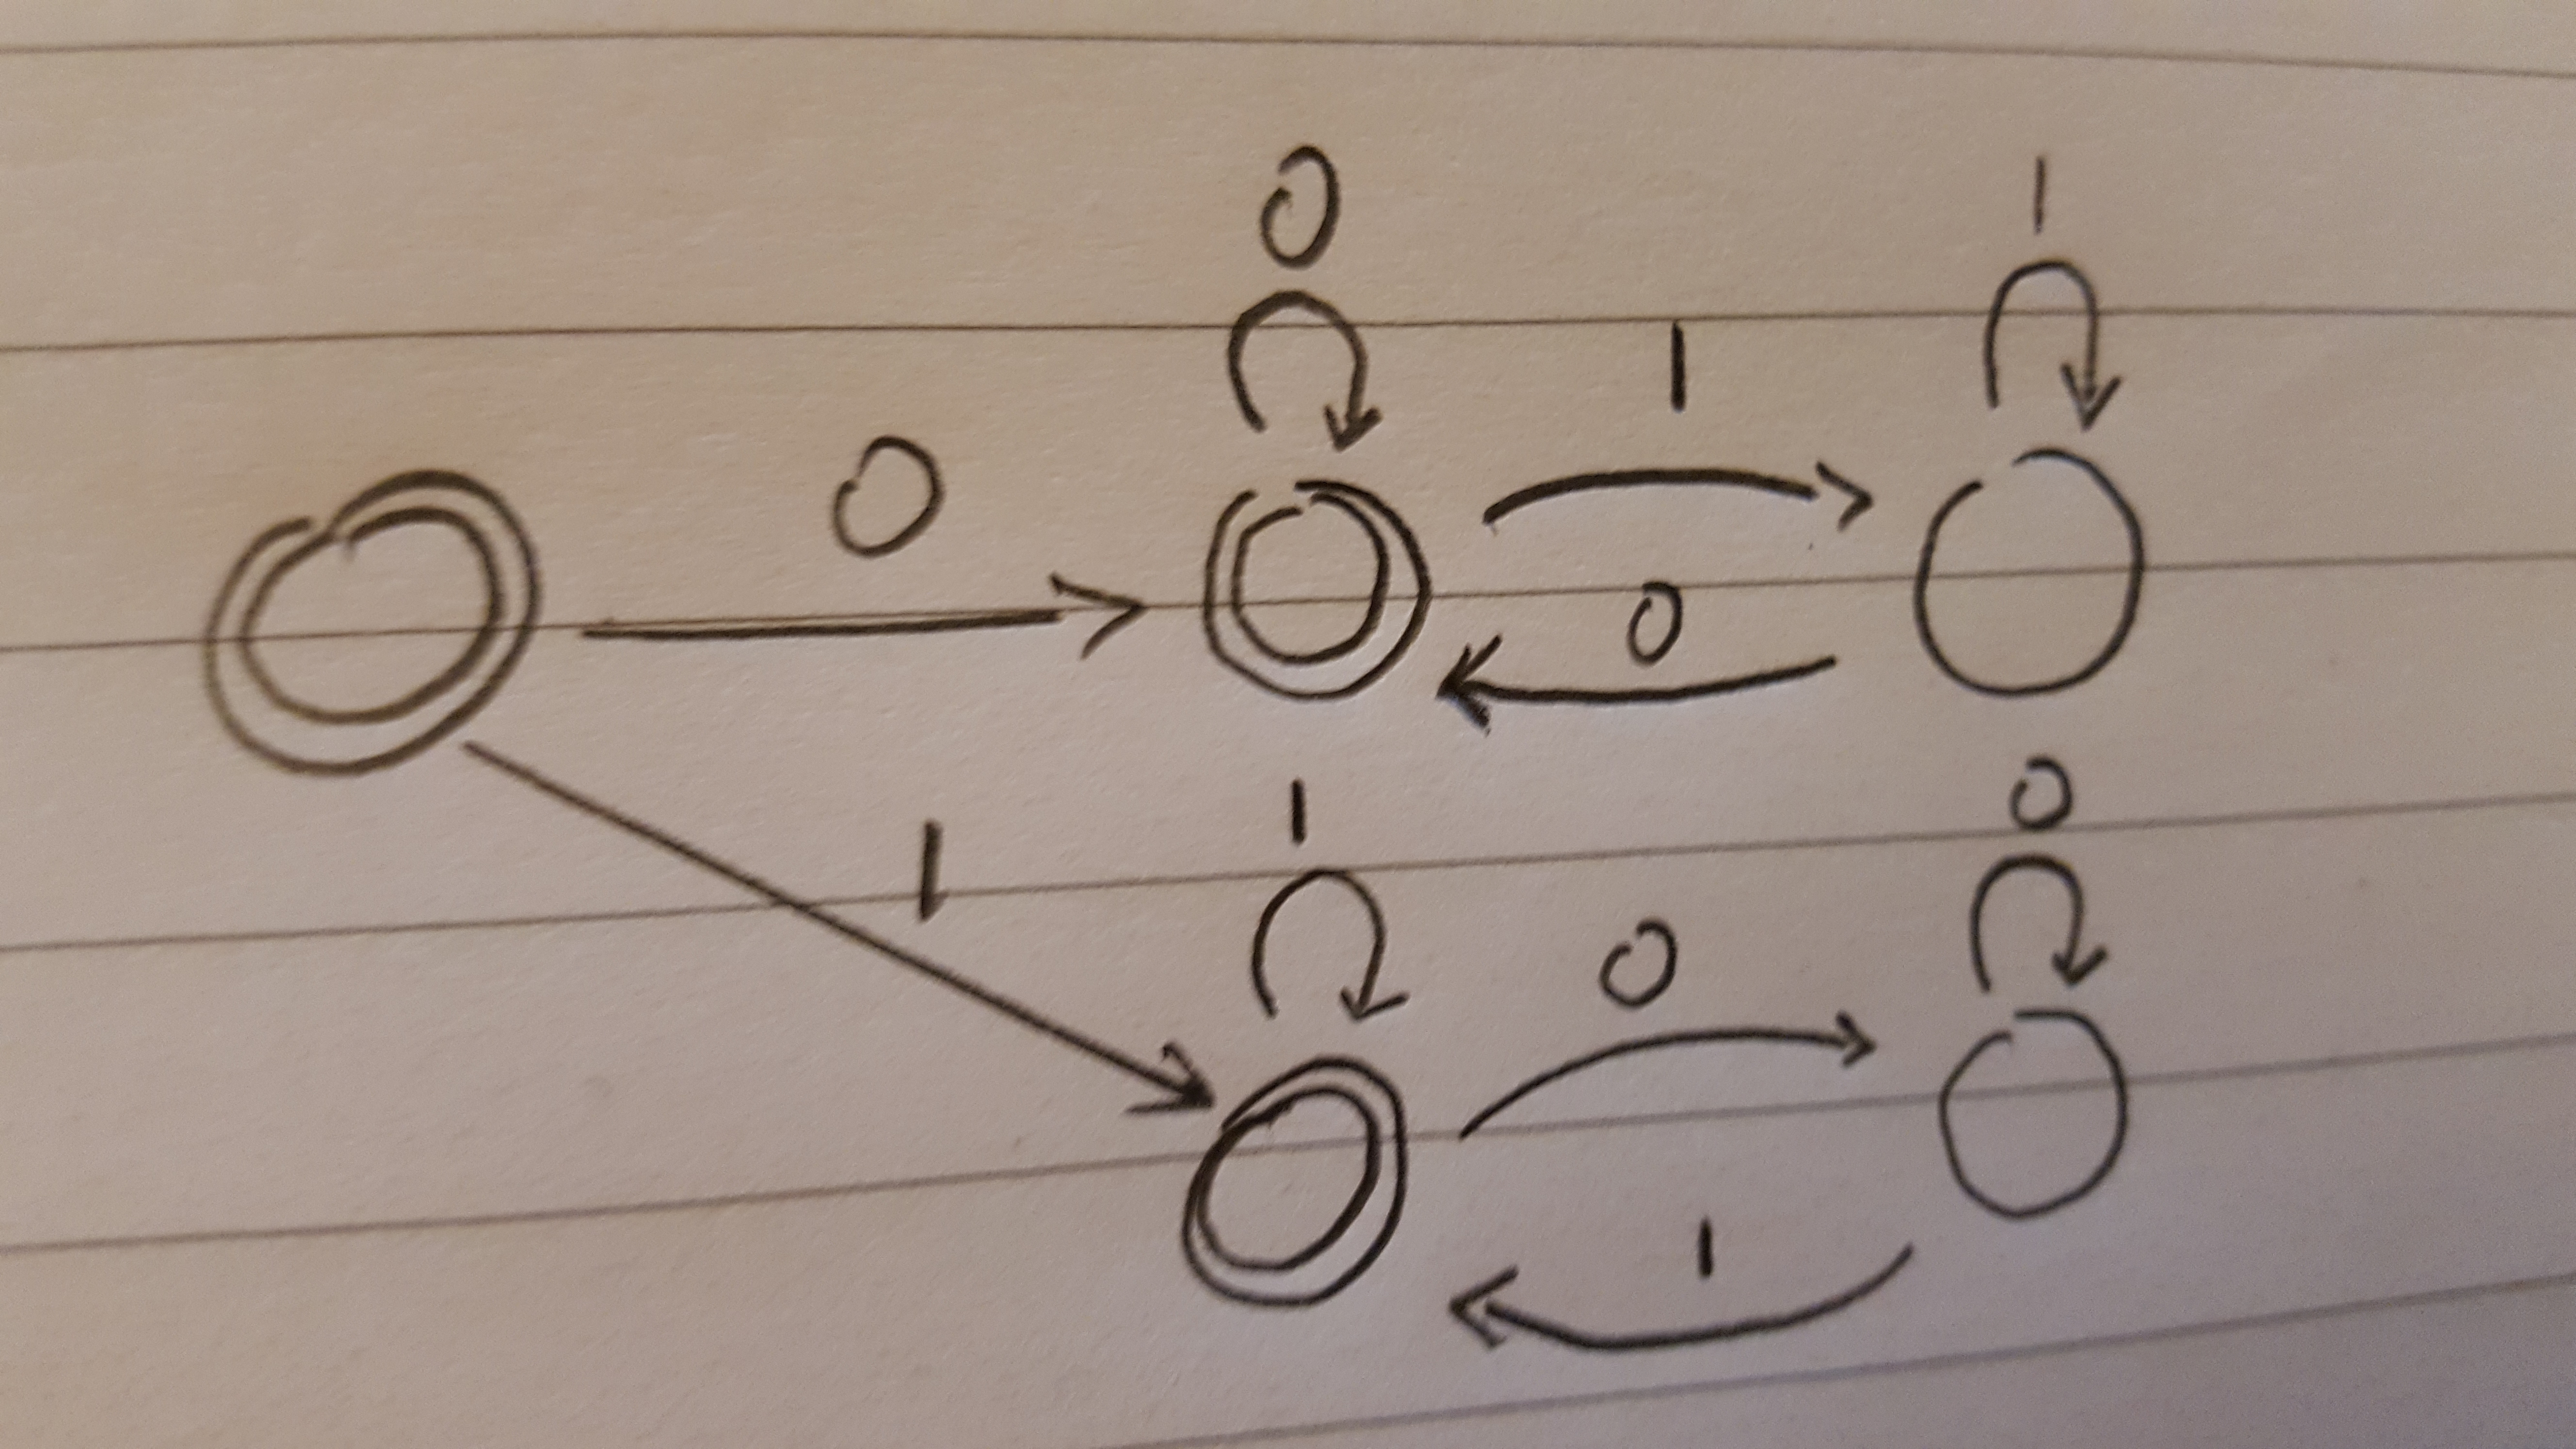 0 1
0 1
0
1 1 0
0
1